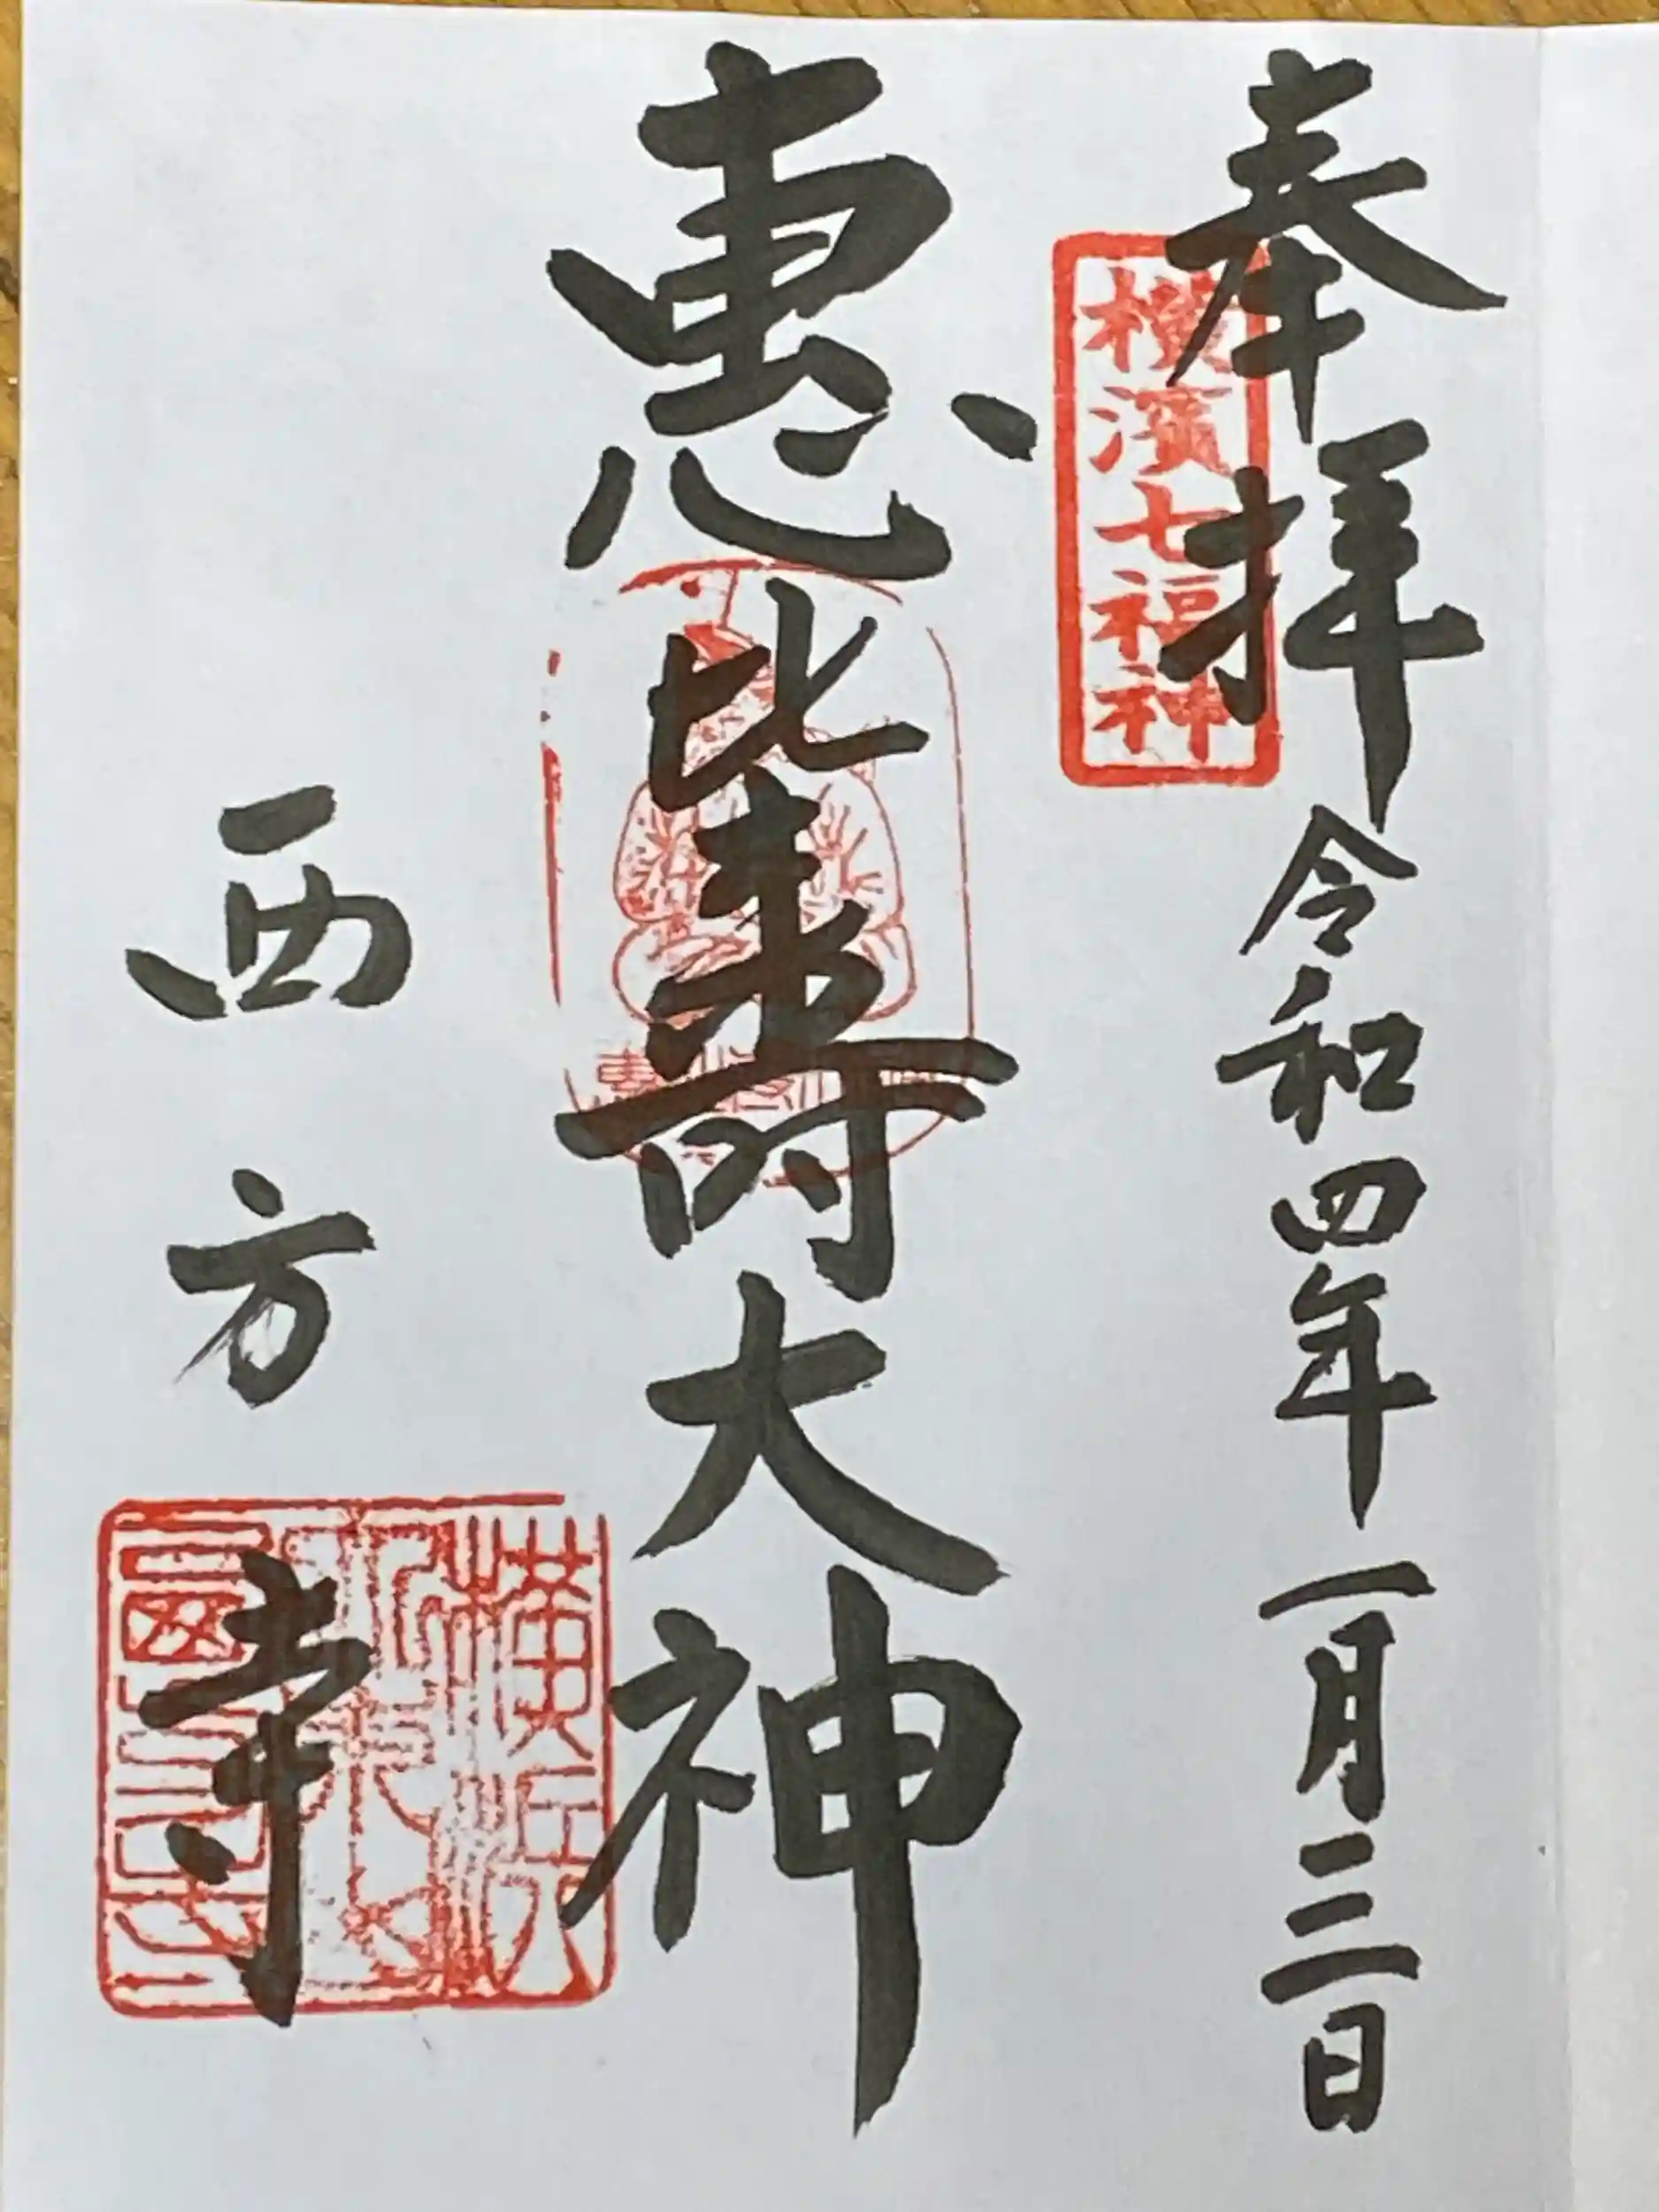 奉拝 令和四年一月三日
横濱七福神
惠比寿大神
西方寺